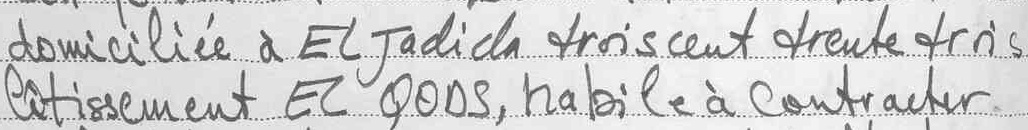 domiciliée à El Jadida trois cent trente trois
lotissement EL QODS, habile à contracter.